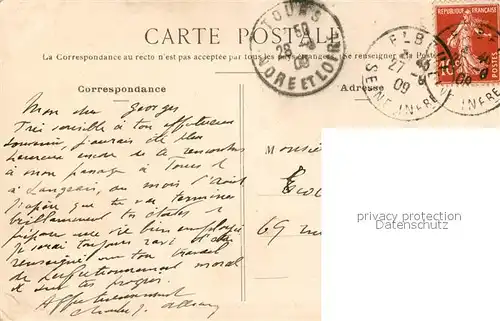 CARTE POSTALE
La Correspondance au recto n'est pas acceptée par tous les pays étrangers (Se renseigner à la Poste)
TOURS
28
09
INDRE ET LOIRE
ELB
27
09
SEINE INFRE
REPUBLIQUE FRANÇAISE
10
POSTES
Correspondance
Adresse
Mon cher Georges
Très sensible à ton affectueux
souvenir, j'aurais été plus
heureux encore de te rencontrer
à mon passage à Tours &
à Langeais, au mois d'Août
J'espère que tu vas terminer
brillamment tes études &
préparer une vie bien employée
Je serai toujours ravi d'être
renseigné sur ton travail
de perfectionnement moral
et sur tes progrès.
Affectueusement
Charles J.
Monsie
69 rue
privacy protection
ansichtskartenversand.com